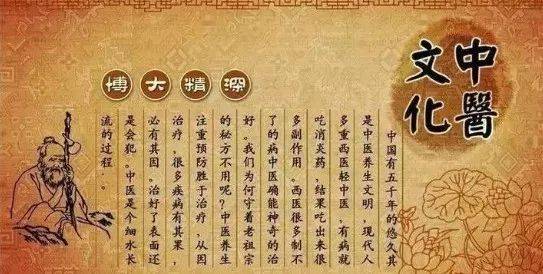 中醫
文化
博大精深
中国有五千年的悠久其
是中医养生文明，现代人
多重西医轻中医，有病就
吃消炎药，结果吃出来很
多副作用。西医很多制不
了的病中医确能神奇的治
好。我们为何守着老祖宗
的秘方不用呢？中医养生
注重预防胜于治疗，从因
治疗，很多疾病有其果，
必有其因。治好了表面还
是会犯。中医是个细水长
流的过程．。